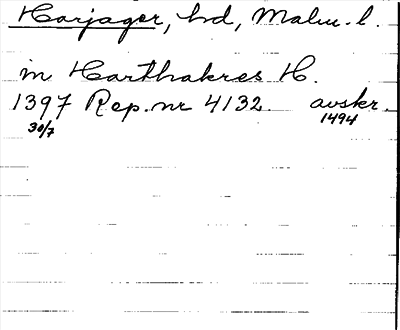 Harjager, hd, Malm. l.
in Harthakres H.
1397 Rep. nr 4132. avskr.
30/7 1494